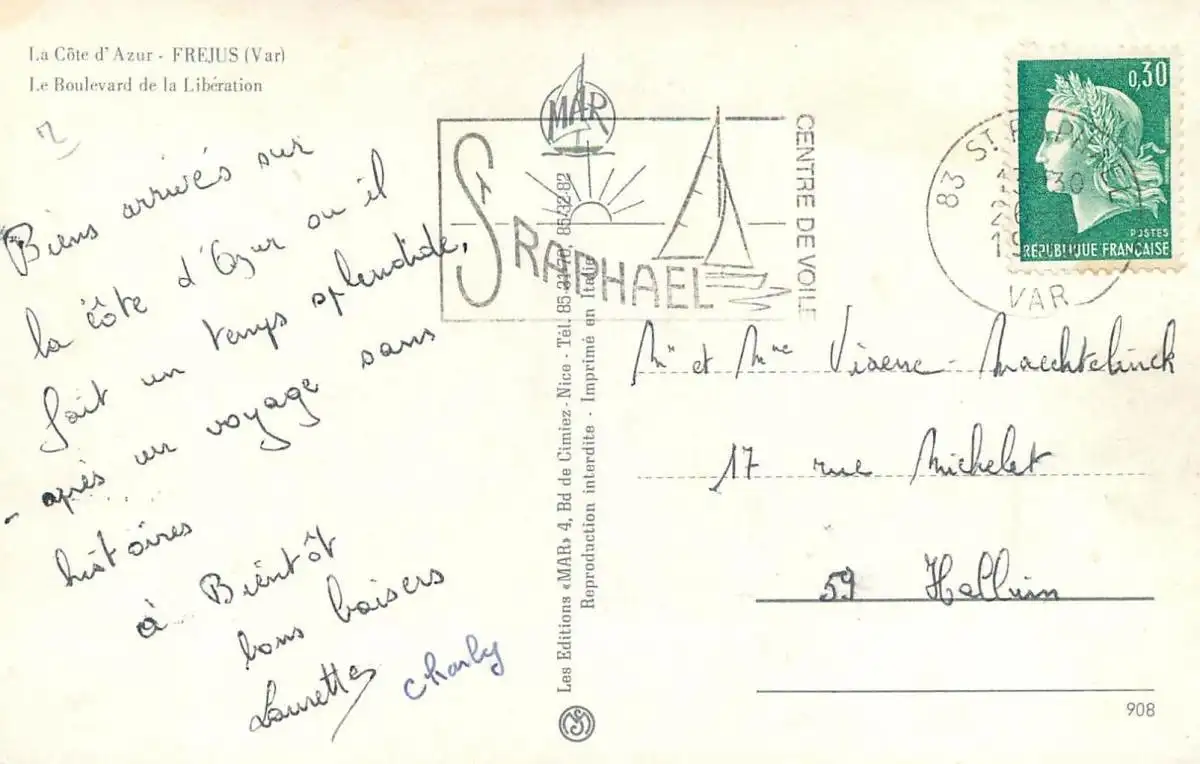 La Côte d'Azur - FREJUS (Var)
Le Boulevard de la Libération
Biens arrivés sur
la côte d'Azur ou il
fait un temps splendide,
après un voyage sans
histoires
à Bientôt
bons baisers
Laurette
Charly
MAR
St RAPHAEL
CENTRE DE VOILE
Les Editions «MAR» 4, Bd de Cimiez - Nice - Tél. 85-31-70, 85-32-82
Reproduction interdite - Imprimé en Italie
83 ST. RAPHAEL
VAR
0,30
POSTES
RÉPUBLIQUE FRANÇAISE
Mr et Mme
17 rue Michelet
59 Halluin
908